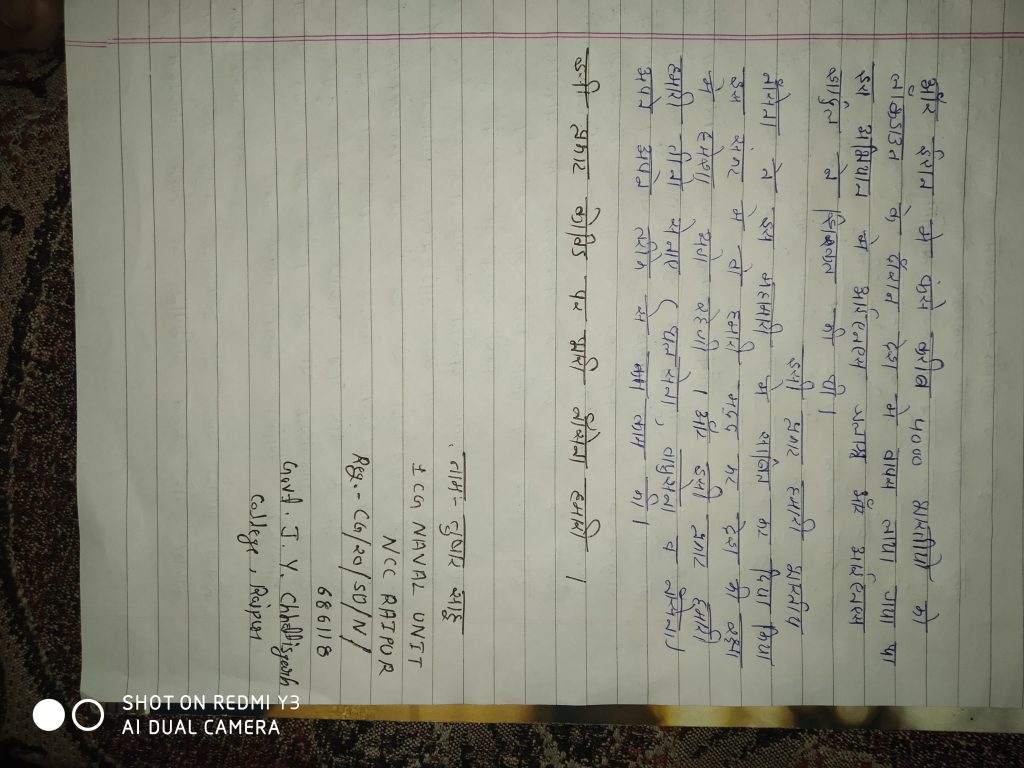 और ईरान में फंसे करीब 4000 भारतीयो को
लॉकडाउन के दौरान देश में वापस लाया गया था
इस अभियान में आईएनएस जलाश्व और आईएनएस
शार्दुल ने शिरकत की थी।
इसी प्रकार हमारी भारतीय
नौसेना ने इस महामारी में साबित कर दिया किया
इस संकट में वो हमारी मदद कर देश की रक्षा
में हमेशा लगी रहेगी । और इसी प्रकार हमारी
हमारी तीनो सेनाए (थल सेना, वायुसेना व नौसेना)
अपने अपने तरीके से काम की।
इसी प्रकार कोविड पर भारी नौसेना हमारी ।
नाम- तुषार साहू
1CG NAVAL UNIT
NCC RAIPUR
Reg.- CG/20/SD/N/
686118
Govt. J. Y. Chhattisgarh
College, Raipur
SHOT ON REDMI Y3
AI DUAL CAMERA